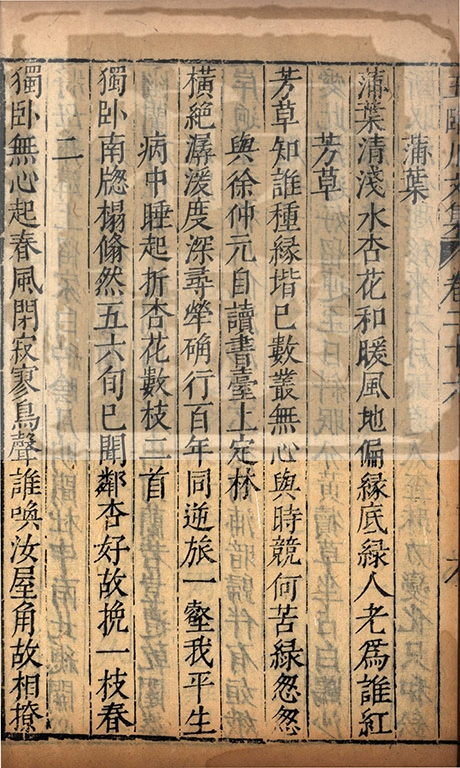 王臨川文集 卷二十六
蒲葉
蒲葉清淺水杏花和暖風地偏緣底綠人老爲誰紅
芳草
芳草知誰種緣堦已數叢無心與時競何苦綠怱怱
與徐仲元自讀書臺上定林
橫絕潺湲度深尋犖确行百年同逆旅一壑我平生
病中睡起折杏花數枝二首
獨卧南牎榻翛然五六旬已聞鄰杏好故挽一枝春
二
獨卧無心起春風閉寂寥鳥聲誰喚汝屋角故相撩